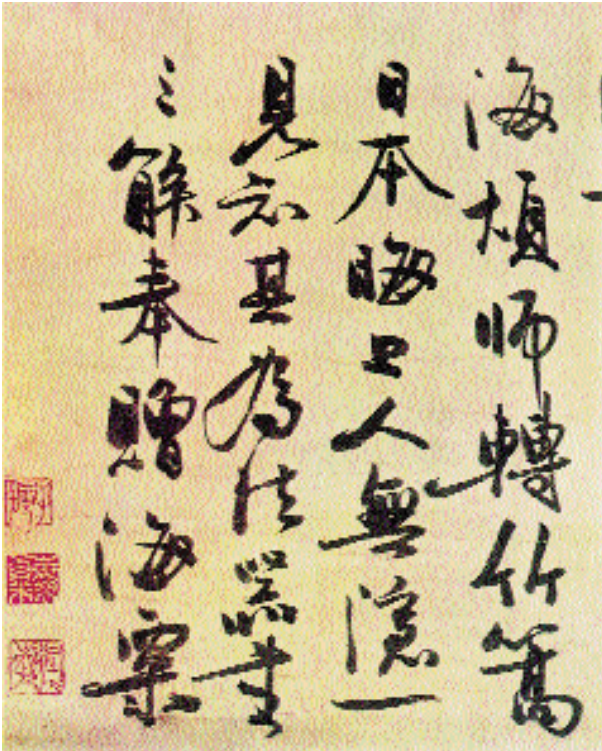 海煩師轉竹篙
日本晦上人無隱一
見知其為法器書
三解奉贈海粟